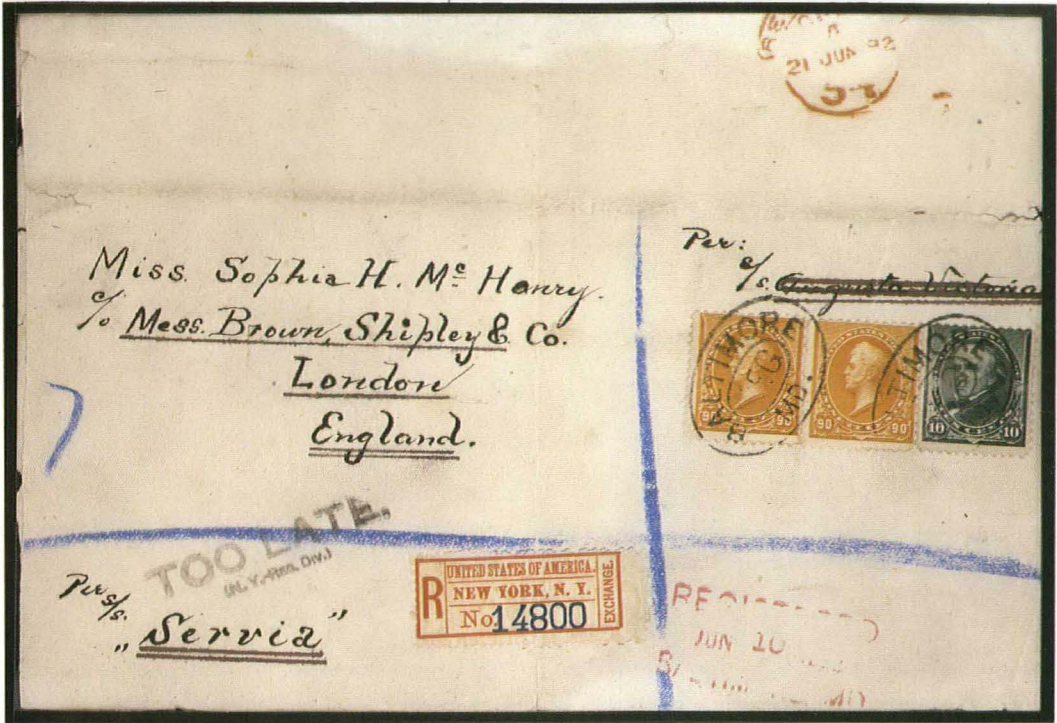 21 JUN 92
Miss. Sophia H. Mc Henry.
c/o Mess. Brown, Shipley & Co.
London
England.
Per:
s/s. Augusta Victoria
BALTIMORE MD.
90 90
90 90
10 10
TOO LATE.
(N. Y. Reg. Div.)
Per s/s.
„Servia"
R
UNITED STATES OF AMERICA.
NEW YORK, N. Y.
No. 14800
EXCHANGE.
REGISTERED
JUN 10
BALTIMORE MD